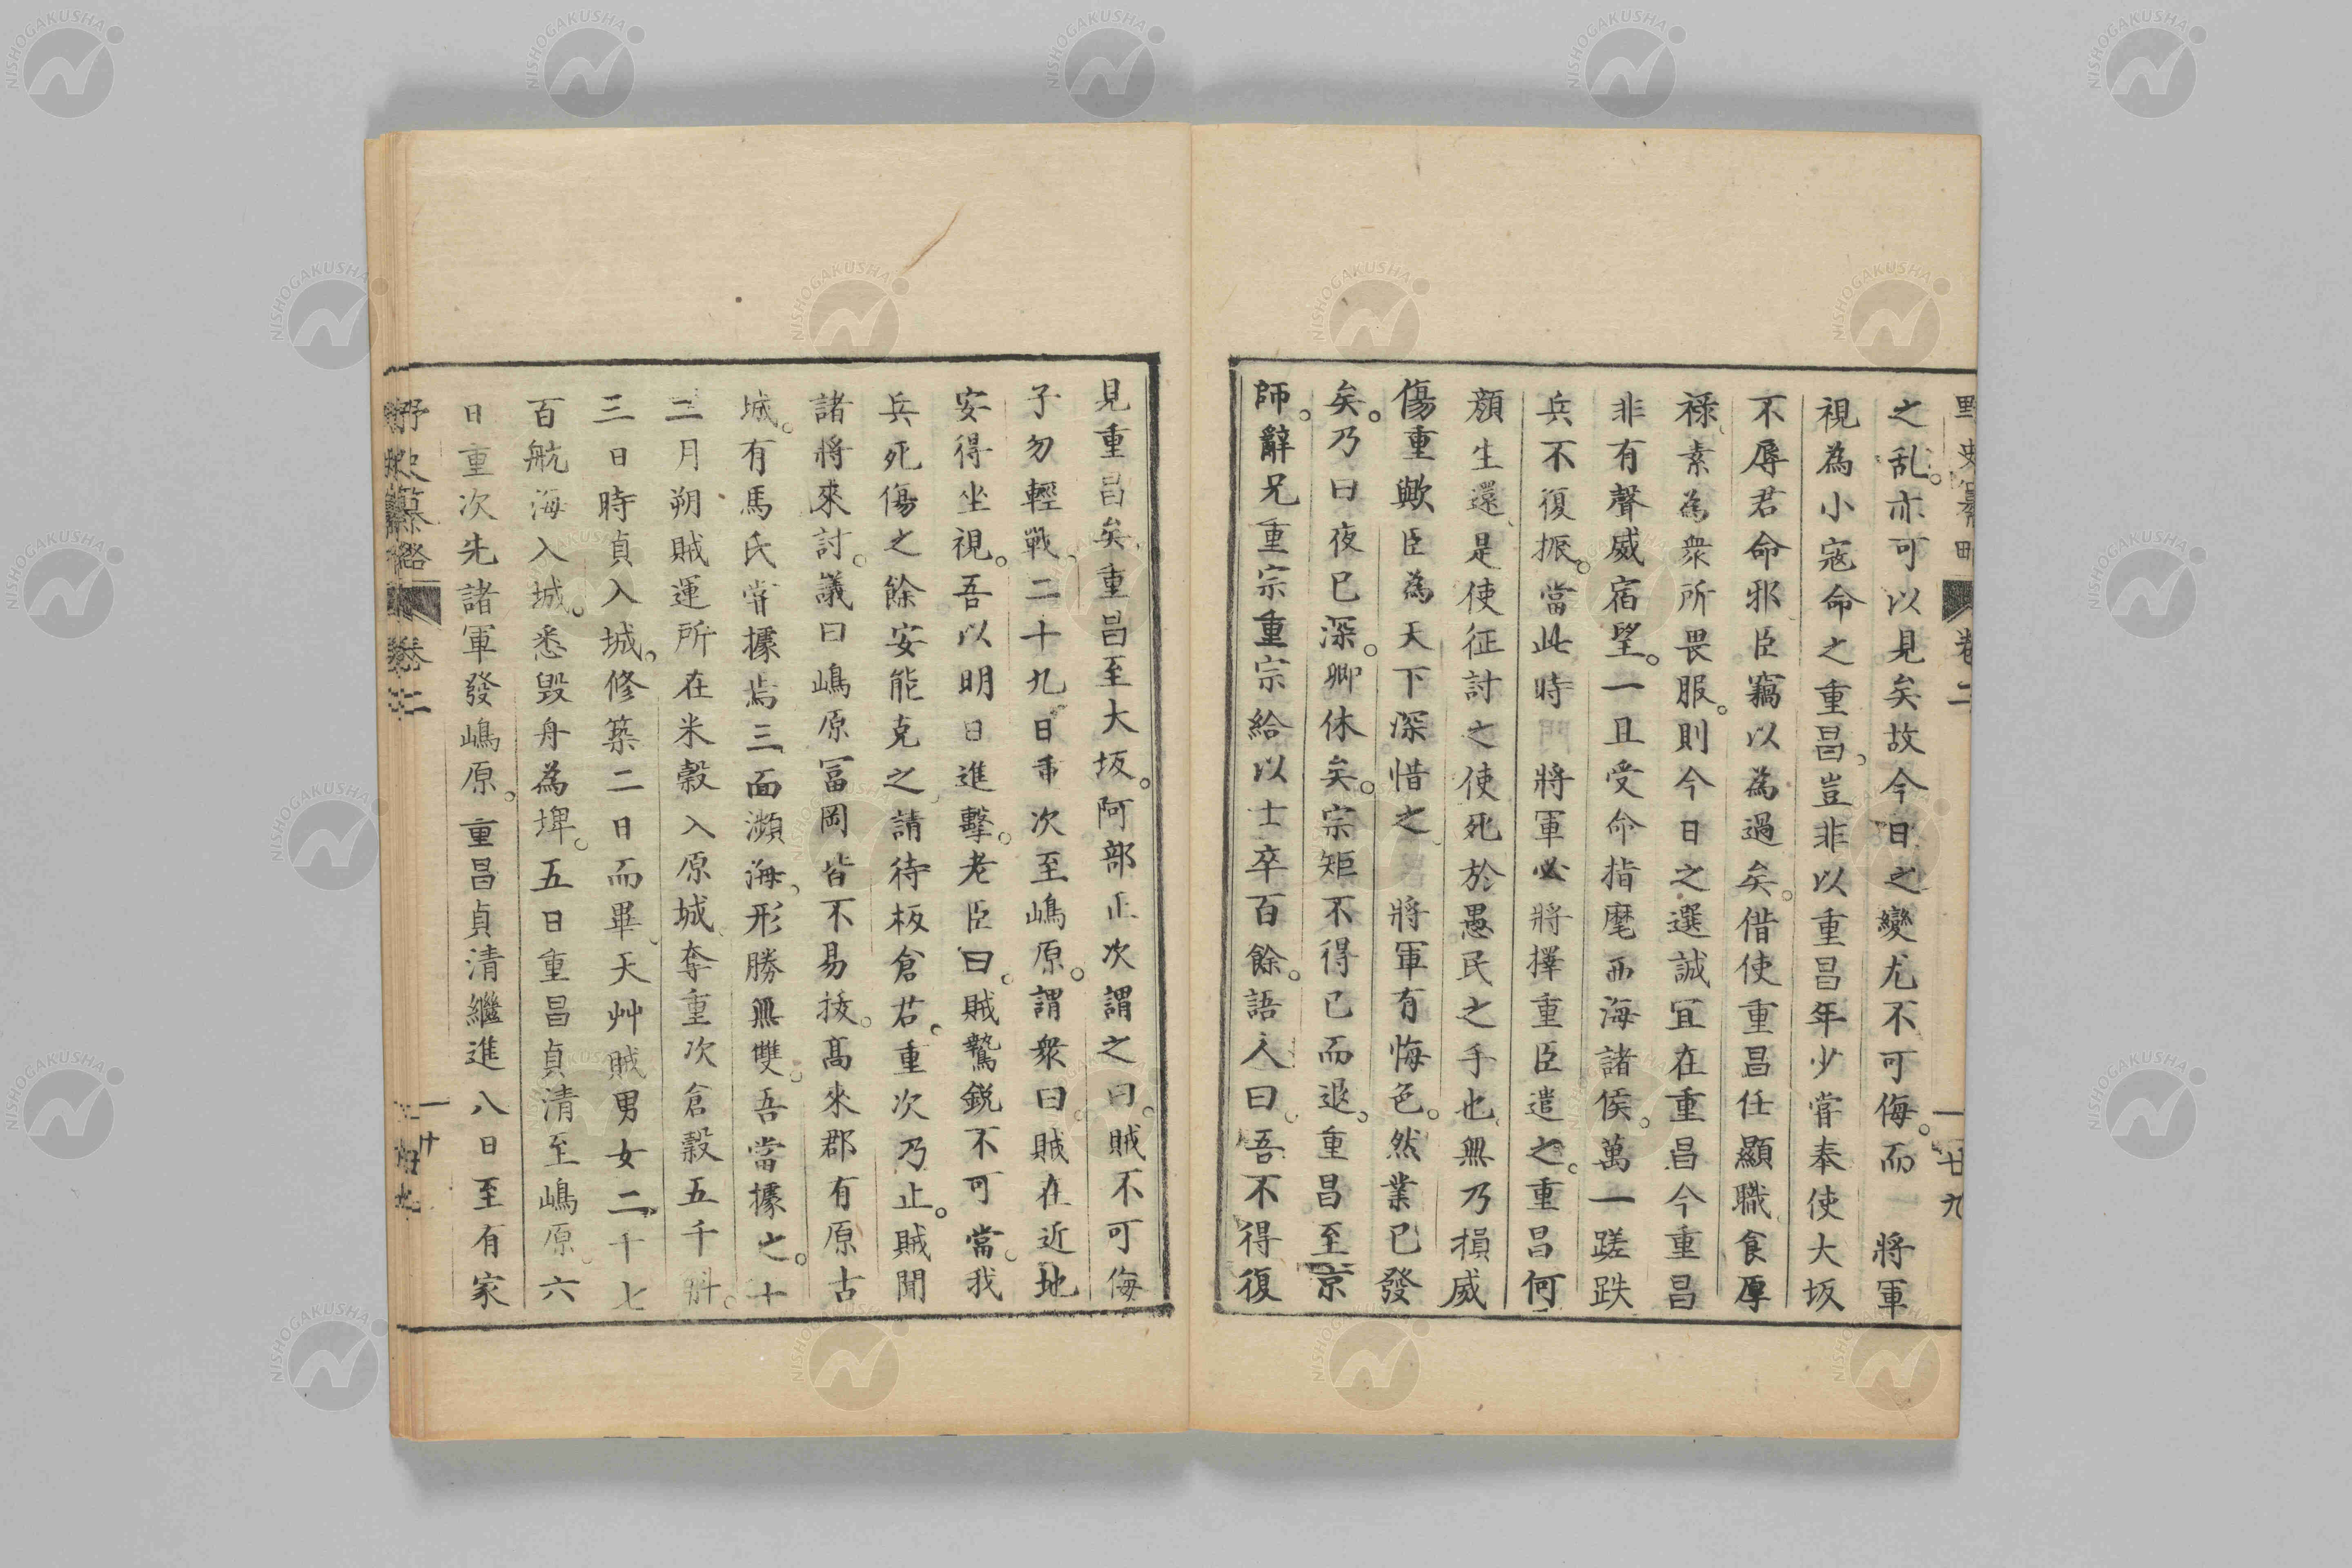 野史纂略 卷二 廿九
之乱。亦可以見矣故今日之變尤不可侮。而 將軍
視為小寇命之重昌。豈非以重昌年少甞奉使大坂
不辱君命邪臣竊以為過矣。借使重昌任顯職食厚
禄。素為衆所畏服。則今日之選誠宜在重昌今重昌
非有聲威宿望。一旦受命指麾西海諸侯。萬一蹉跌
兵不復振。當此時 將軍必將擇重臣遣之。重昌何
顔生還。是使征討之使死於愚民之手也。無乃損威
傷重歟臣為天下深惜之。將軍有悔色。然業已發
矣。乃曰夜已深。卿休矣。宗矩不得已而退。重昌至京
師。辭兄重宗重宗給以士卒百餘。語人曰。吾不得復
見重昌矣。重昌至大坂。阿部正次謂之曰。賊不可侮
子勿輕戰。二十九日重次至嶋原。謂衆曰。賊在近地
安得坐視。吾以明日進擊。老臣曰。賊鷙鋭不可當。我
兵死傷之餘安能克之。請待板倉君。重次乃止。賊聞
諸將來討。議曰嶋原冨岡皆不易拔。髙來郡有原古
城。有馬氏甞據焉三面瀕海。形勝無雙。吾當據之。十
二月朔賊運所在米穀入原城。奪重次倉穀五千斛。
三日時貞入城。修築二日而畢。天艸賊男女二千七
百航海入城。悉毀舟為埤。五日重昌貞清至嶋原。六
日重次先諸軍發嶋原。重昌貞清繼進八日至有家
野史纂略 卷二